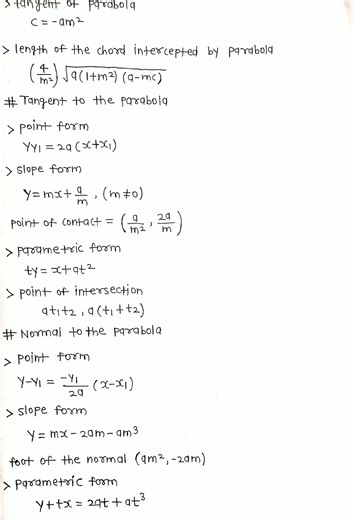 > tangent of parabola
c = -am²
> length of the chord intercepted by parabola
(4/m²) √a(1+m²) (a-mc)
# Tangent to the parabola
> point form
yy₁ = 2a (x+x₁)
> slope form
y = mx + a/m , (m≠0)
point of contact = (a/m² , 2a/m)
> parametric form
ty = x + at²
> point of intersection
at₁t₂ , a(t₁+t₂)
# Normal to the parabola
> point form
y-y₁ = -y₁/2a (x-x₁)
> slope form
y = mx - 2am - am³
foot of the normal (am², -2am)
> parametric form
y + tx = 2at + at³